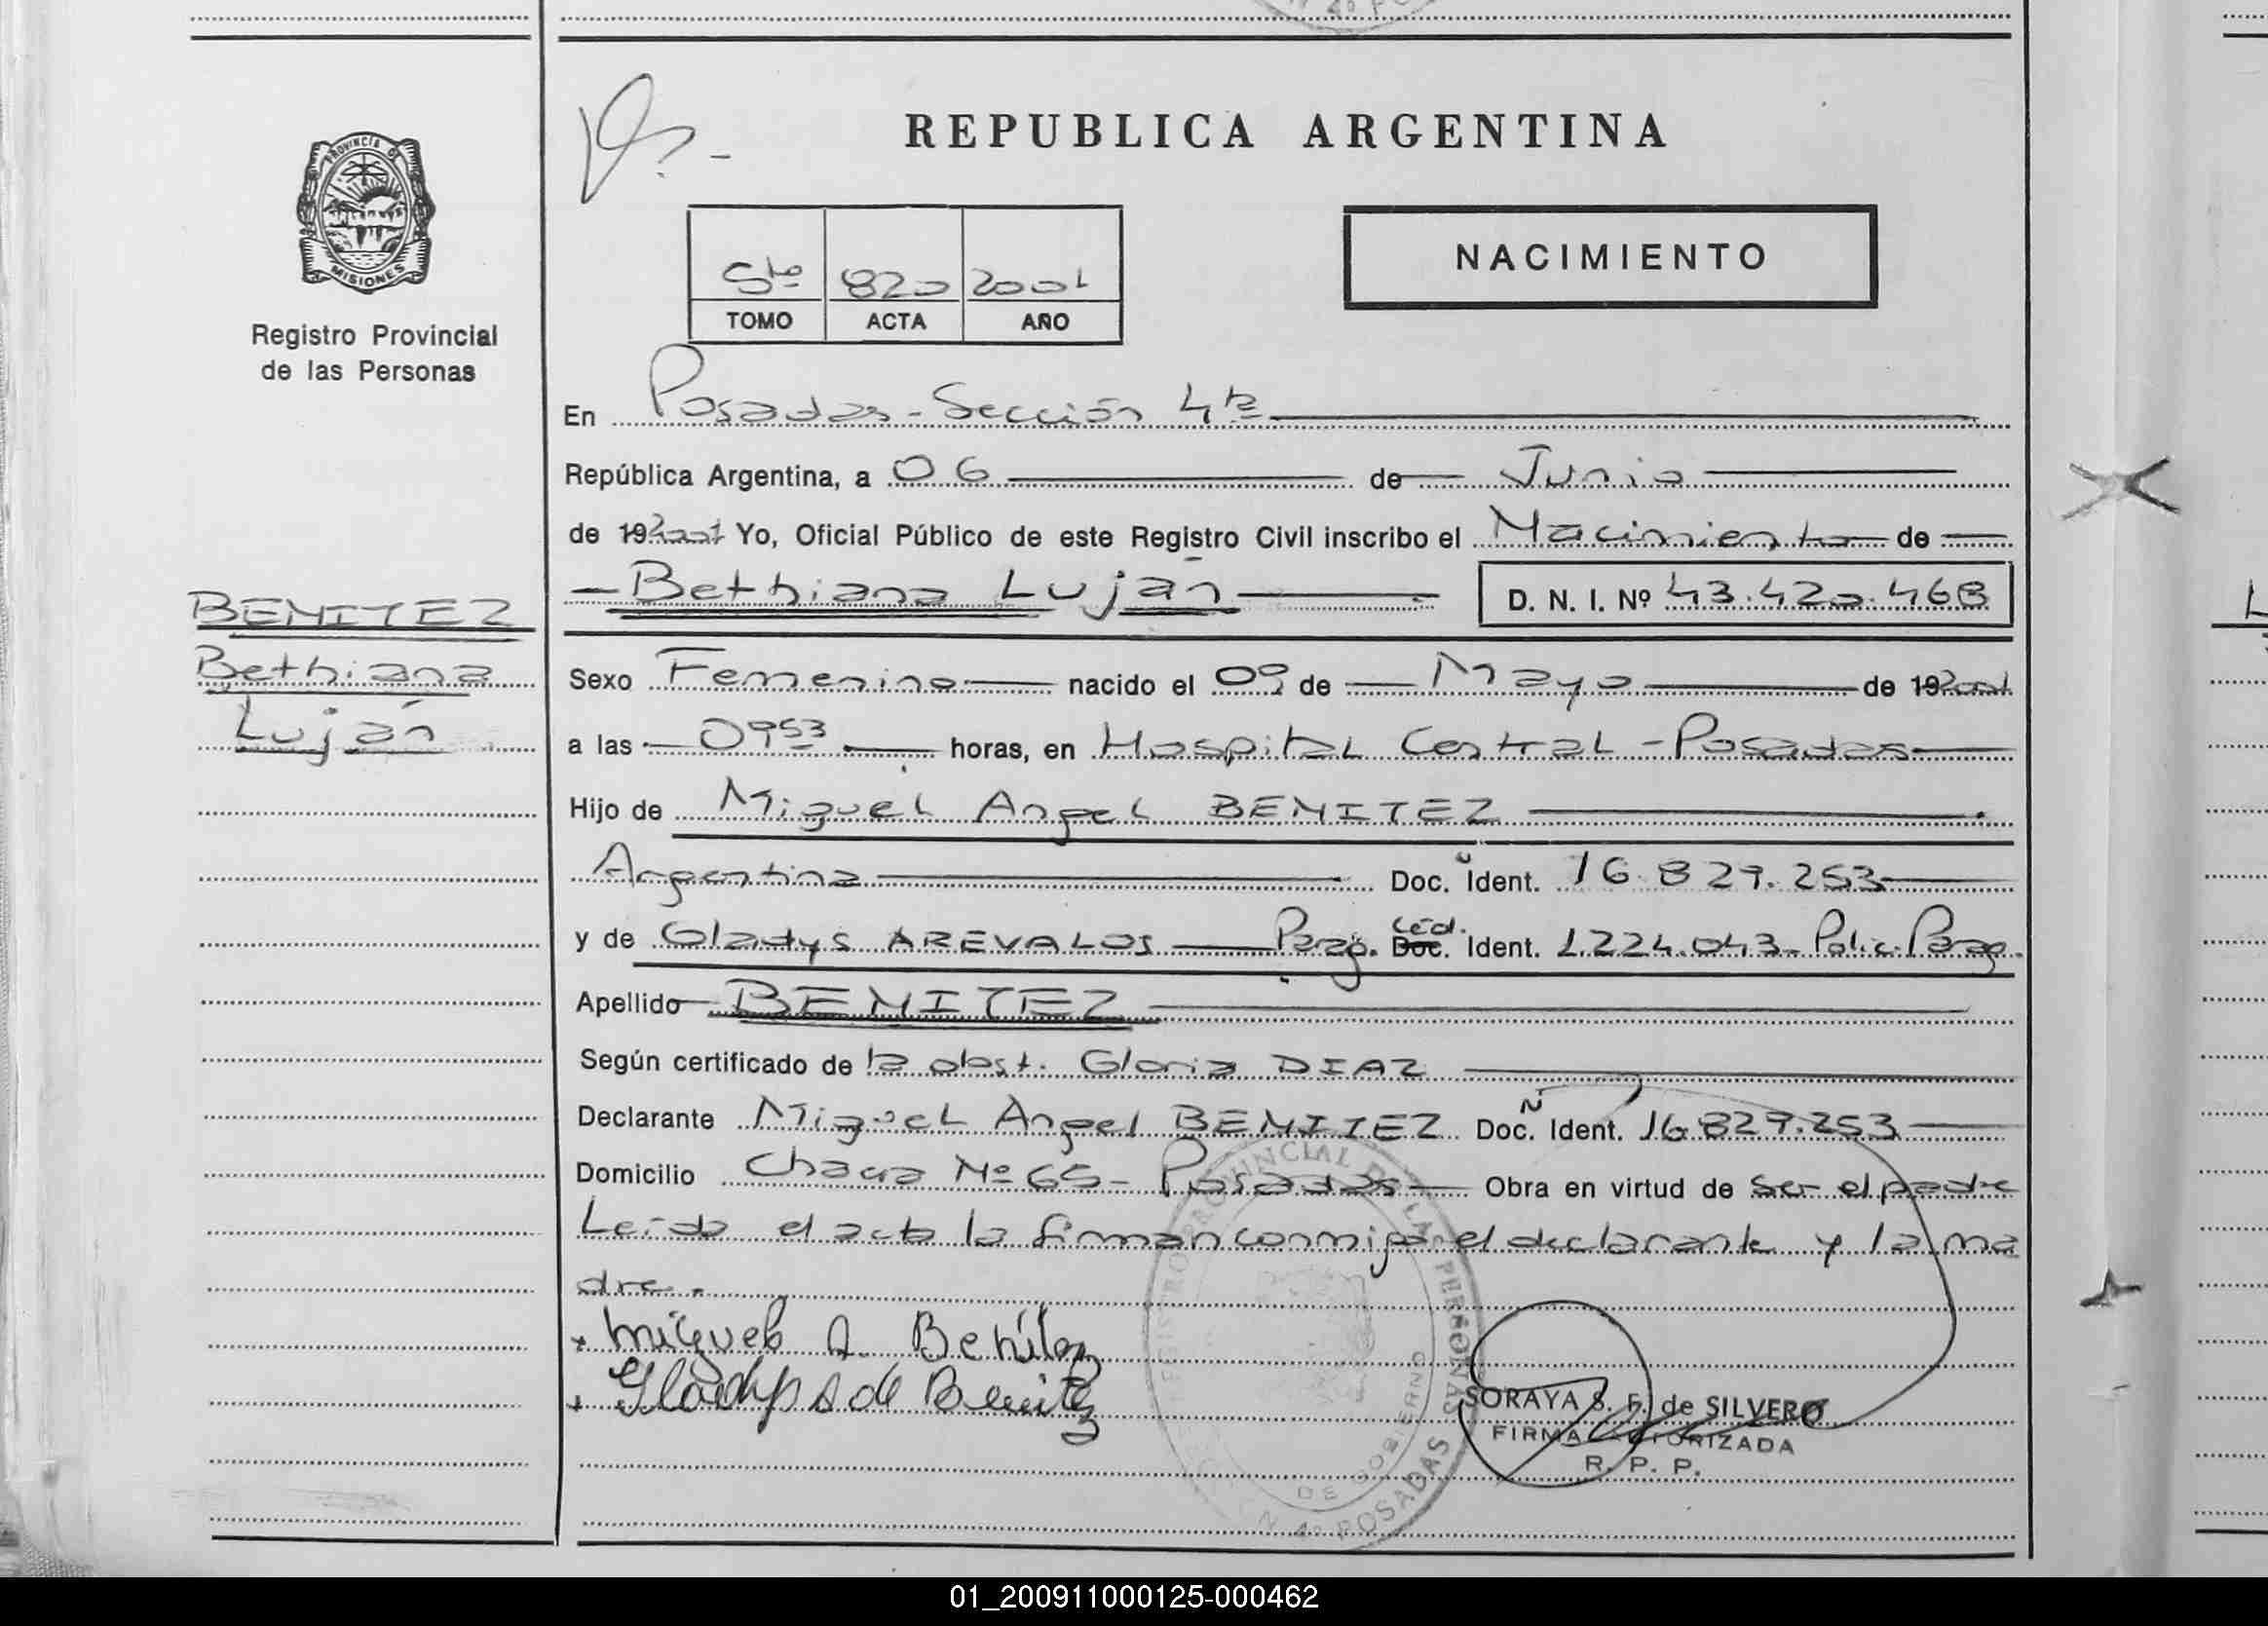 REPUBLICA ARGENTINA
PROVINCIA DE
MISIONES
Registro Provincial
de las Personas
5to 820 2001
TOMO ACTA AÑO
NACIMIENTO
En Posadas - Sección 4ta
República Argentina, a 06 de Junio
de 19 2001 Yo, Oficial Público de este Registro Civil inscribo el Nacimiento de
Bethiana Luján D. N. I. Nº 43.420.468
BENITEZ
Bethiana
Luján
Sexo Femenino nacido el 09 de Mayo de 19 2001
a las 0953 horas, en Hospital Central - Posadas
Hijo de Miguel Angel BENITEZ
Argentina Doc. Ident. 16.829.253
y de Gladys AREVALOS Parag. Céd. Doc. Ident. 1.224.043 - Polic. Parag.
Apellido BENITEZ
Según certificado de la obst. Gloria DIAZ
Declarante Miguel Angel BENITEZ Doc. Ident. 16.829.253
Domicilio Chacra Nº 65 - Posadas Obra en virtud de ser el padre
Leida el acta la firman conmigo el declarante y la ma
dre.
Miguel A. Benitez
Gladys A de Benitez
SORAYA S. F. de SILVERO
FIRMA AUTORIZADA
R. P. P.
REGISTRO PROVINCIAL DE LAS PERSONAS
DE GOBIERNO
4º POSADAS
01_200911000125-000462